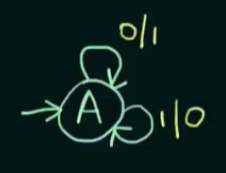 0/1
A
1/0